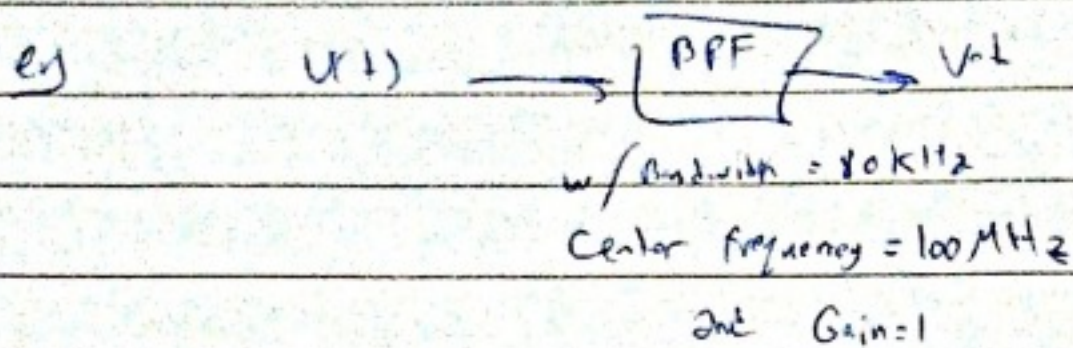 eg V(t) BPF Vout
w/ Bandwidth = 80 kHz
Center frequency = 100 MHz
and Gain = 1